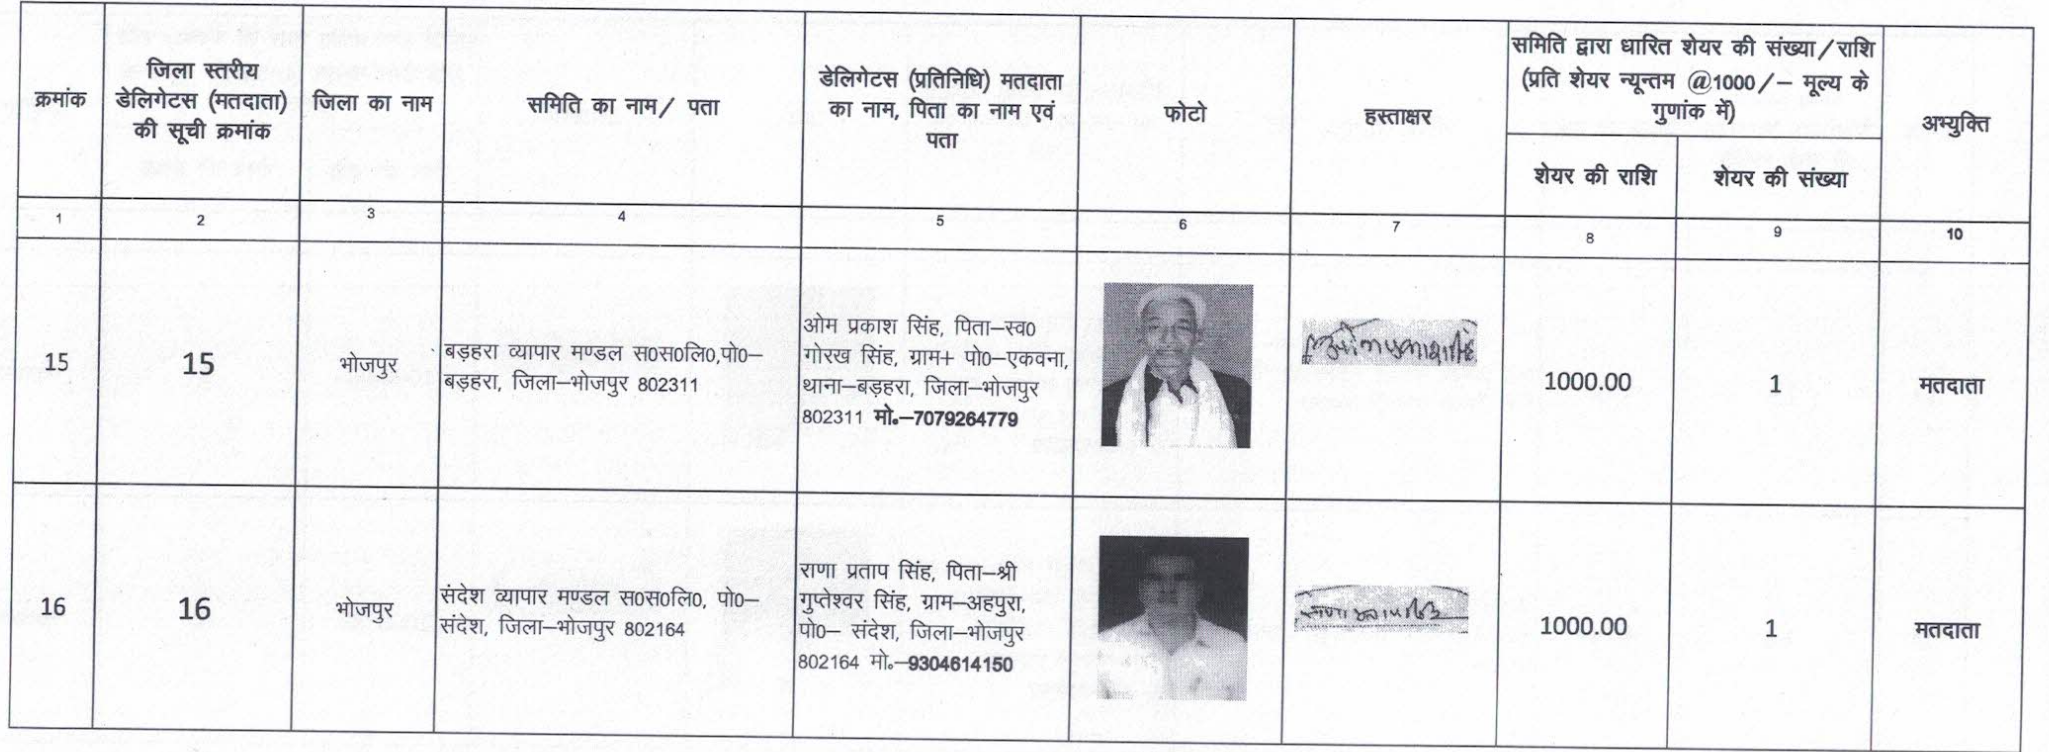 क्रमांक
जिला स्तरीय
डेलिगेटस (मतदाता)
की सूची क्रमांक
जिला का नाम
समिति का नाम/ पता
डेलिगेटस (प्रतिनिधि) मतदाता
का नाम, पिता का नाम एवं
पता
फोटो
हस्ताक्षर
समिति द्वारा धारित शेयर की संख्या/राशि
(प्रति शेयर न्यून्तम @1000/– मूल्य के
गुणांक में)
शेयर की राशि
शेयर की संख्या
अभ्युक्ति
1
2
3
4
5
6
7
8
9
10
15
15
भोजपुर
बड़हरा व्यापार मण्डल स0स0लि0,पो0–
बड़हरा, जिला–भोजपुर 802311
ओम प्रकाश सिंह, पिता–स्व0
गोरख सिंह, ग्राम+ पो0–एकवना,
थाना–बड़हरा, जिला–भोजपुर
802311 मो.–7079264779
1000.00
1
मतदाता
16
16
भोजपुर
संदेश व्यापार मण्डल स0स0लि0, पो0–
संदेश, जिला–भोजपुर 802164
राणा प्रताप सिंह, पिता–श्री
गुप्तेश्वर सिंह, ग्राम–अहपुरा,
पो0– संदेश, जिला–भोजपुर
802164 मो.–9304614150
1000.00
1
मतदाता